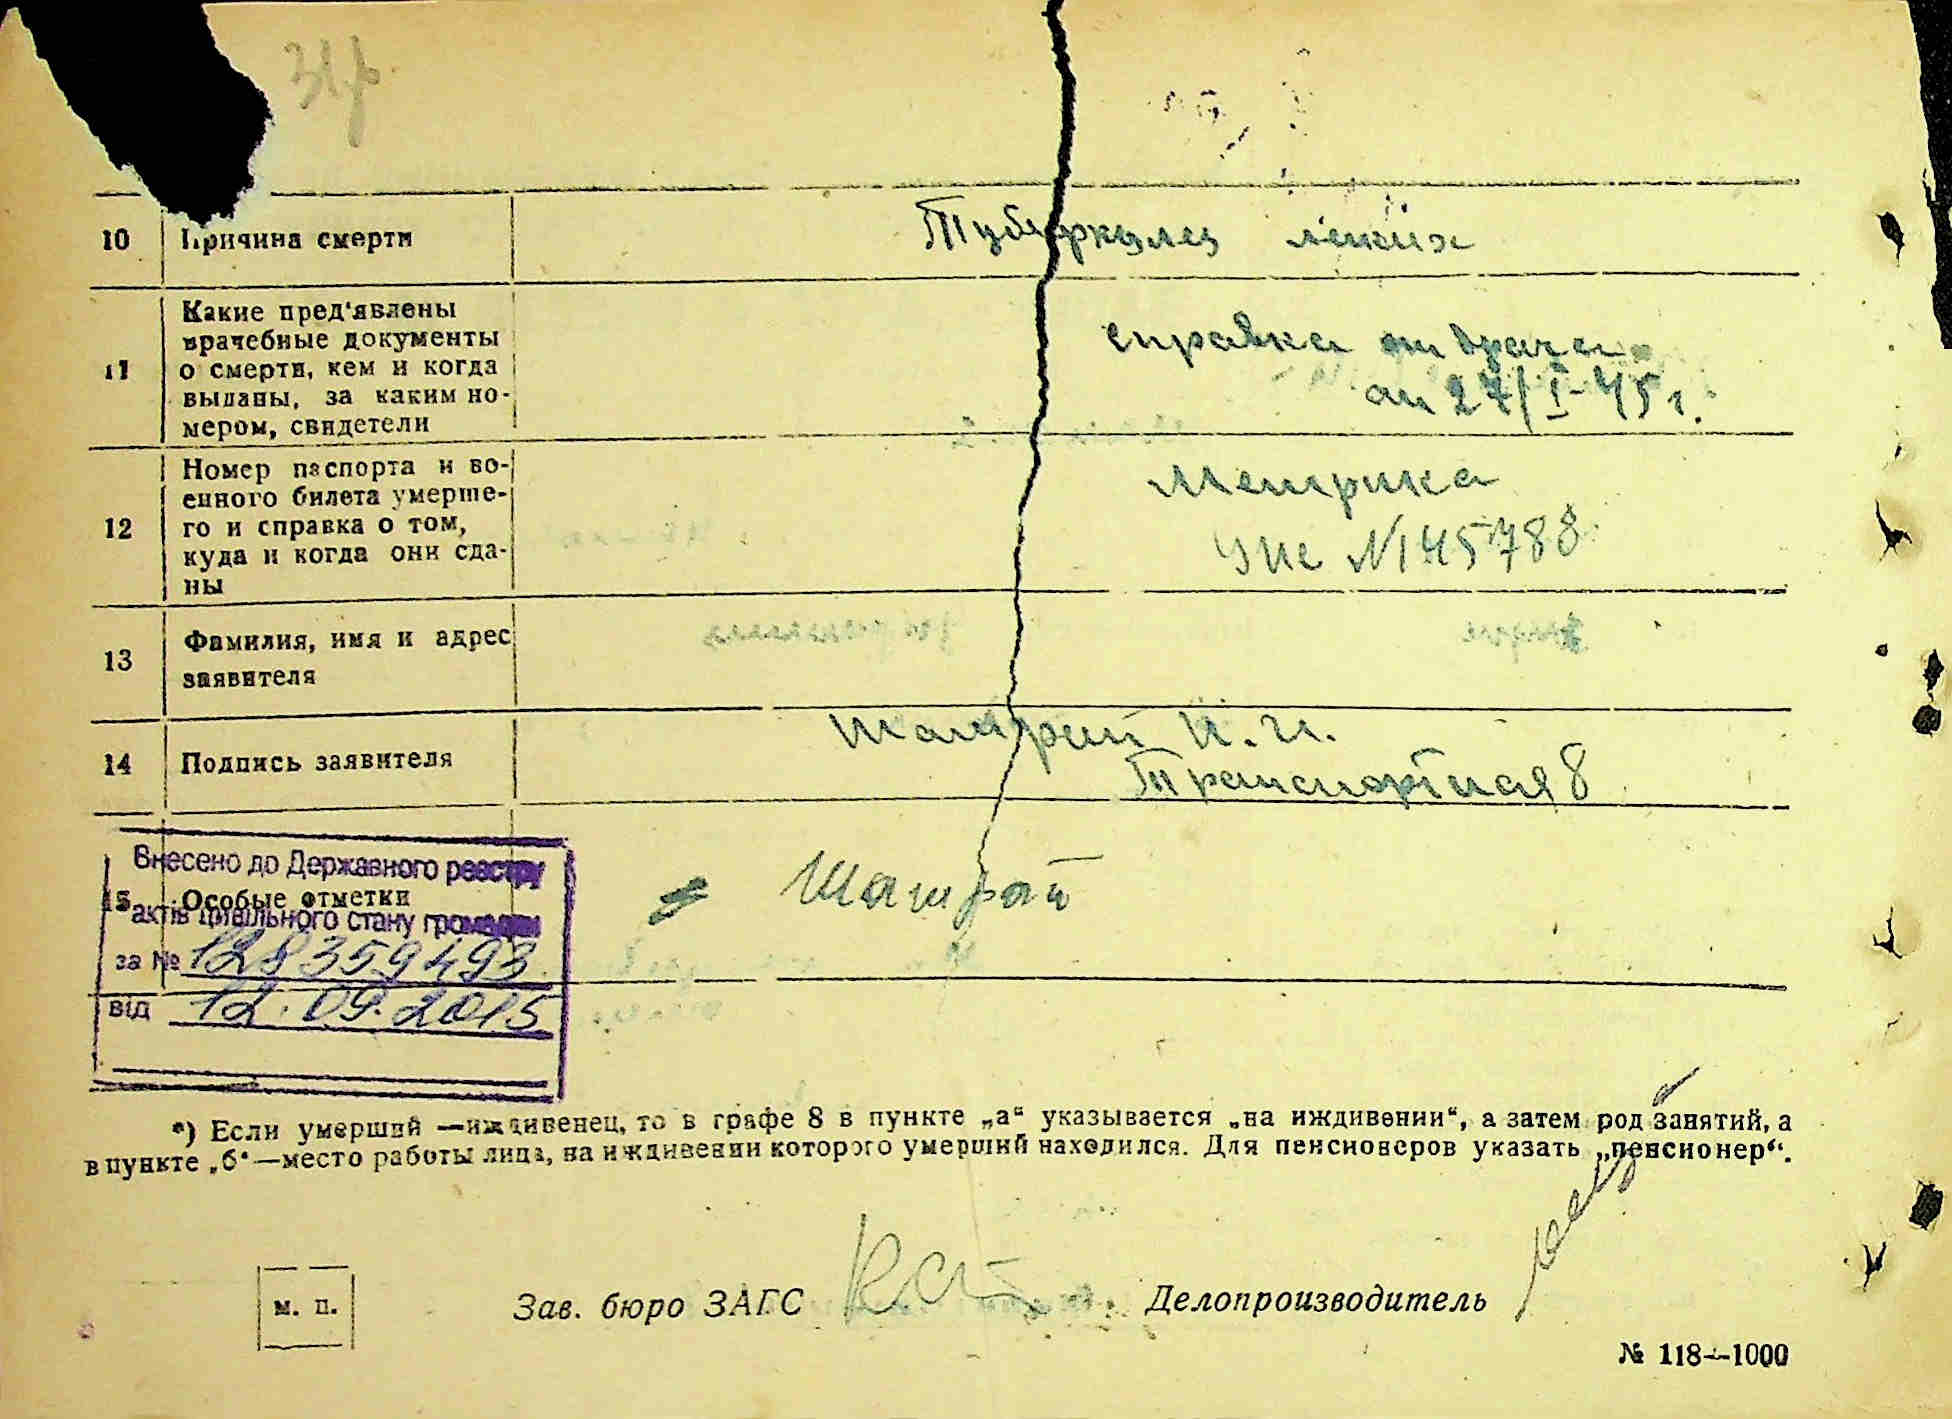 10 Причина смерти
Туберкулез легких
11 Какие пред'явлены врачебные документы о смерти, кем и когда выданы, за каким но-
мером, свидетели
справка от врача
от 27/I-45 г.
12 Номер паспорта и во-
енного билета умерше-
го и справка о том,
куда и когда они сда-
ны
Метрика
№ 145788
13 Фамилия, имя и адрес
заявителя
14 Подпись заявителя
Шамрай
Транспортная 8
15 Особые отметки
Шамрай
Внесено до Державного реєстру
актів цивільного стану громадян
за № 128359493
від 12.09.2015
*) Если умерший —иждивенец, то в графе 8 в пункте „а“ указывается „на иждивении“, а затем род занятий, а
в пункте „б“—место работы лица, на иждивении которого умерший находился. Для пенсионеров указать „пенсионер“.
м. п.
Зав. бюро ЗАГС
Делопроизводитель
№ 118—1000